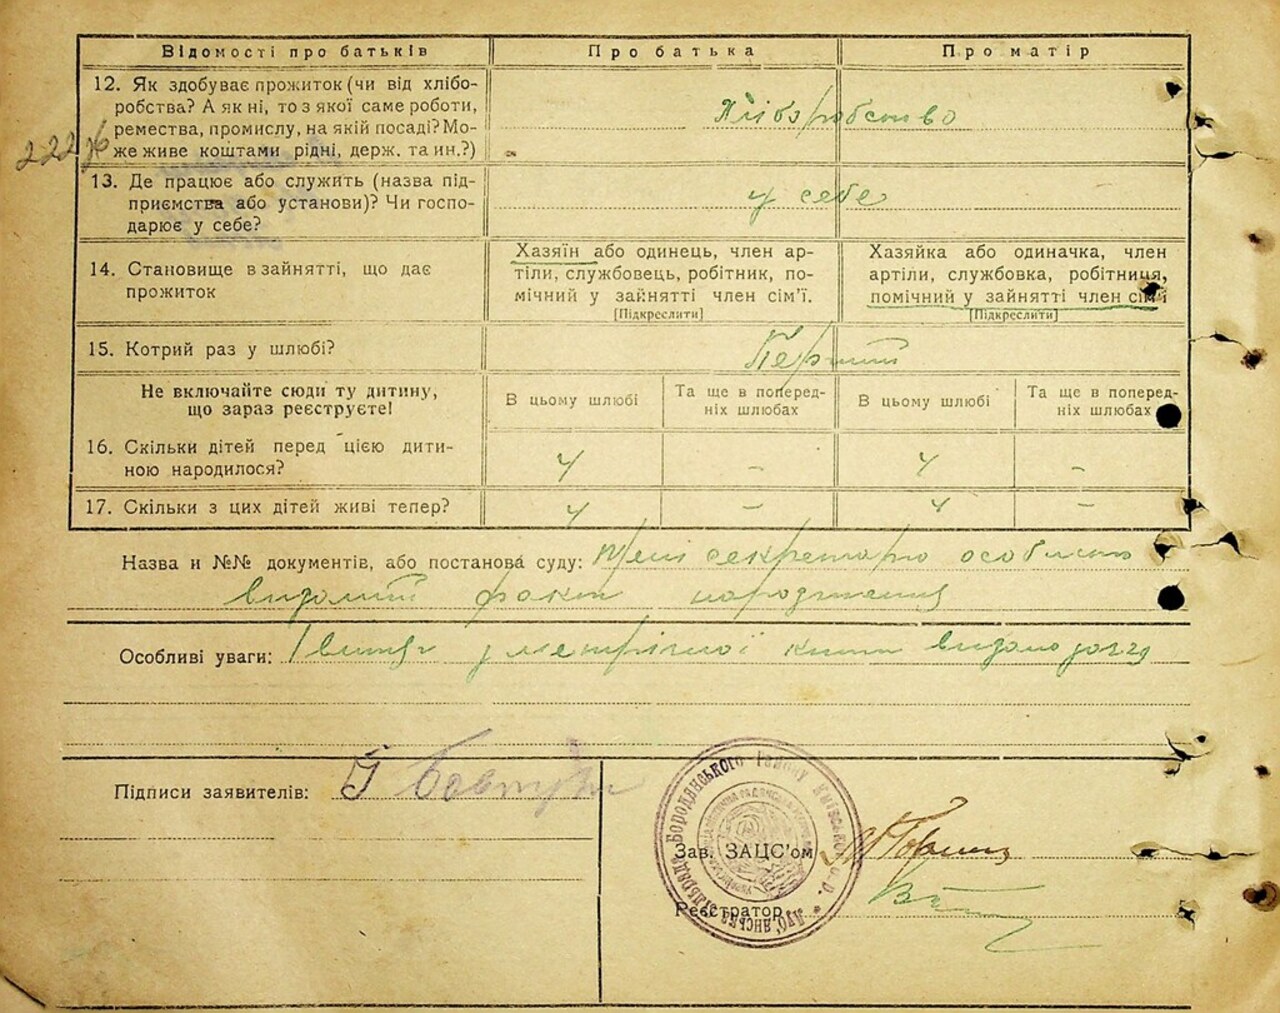 Відомості про батьків Про батька Про матір
12. Як здобуває прожиток (чи від хлібо-
робства? А як ні, то з якої саме роботи,
ремества, промислу, на якій посаді? Мо-
же живе коштами рідні, держ. та ин.?)
Хліборобство
222
13. Де працює або служить (назва під-
приємства або установи)? Чи госпо-
дарює у себе?
у себе
14. Становище в зайнятті, що дає
прожиток
Хазяїн або одинець, член ар-
тіли, службовець, робітник, по-
мічний у зайнятті член сім'ї.
[Підкреслити]
Хазяйка або одиначка, член
артіли, службовка, робітниця,
помічний у зайнятті член сім'ї
[Підкреслити]
15. Котрий раз у шлюбі?
Перший
Не включайте сюди ту дитину,
що зараз реєструєте!
В цьому шлюбі
Та ще в поперед-
ніх шлюбах
В цьому шлюбі
Та ще в поперед-
ніх шлюбах
16. Скільки дітей перед цією дити-
ною народилося?
4 - 4 -
17. Скільки з цих дітей живі тепер?
4 - 4 -
Назва и №№ документів, або постанова суду: Мені секретарю особисто
видомий факт народження
Особливі уваги: витяг з метричної книги видано
Підписи заявителів:
Зав. ЗАЦС'ом
Реєстратор
Бородянського району Київської